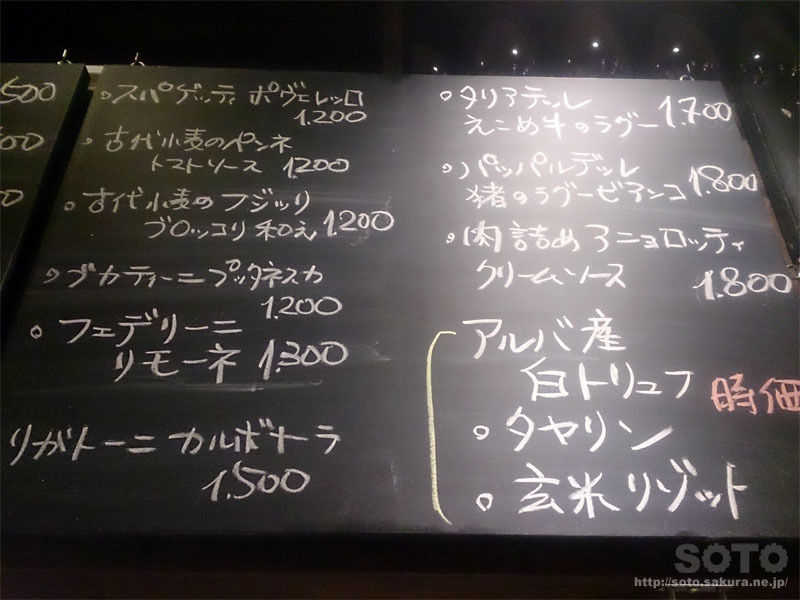 500
00
0
。スパゲッティ ポヴェレッロ
1.200
。古代小麦のペンネ
トマトソース 1200
。古代小麦のフジッリ
ブロッコリ和え 1200
。ブカティーニ プッタネスカ
1.200
。フェデリーニ
リモーネ 1.300
リガトーニ カルボナーラ
1.500
。タリアテッレ
えこめ牛のラグー 1.700
。パッパルデッレ
猪のラグービアンコ 1.800
。肉詰めアニョロッティ
クリームソース 1.800
アルバ産
白トリュフ 時価
。タヤリン
。玄米リゾット
SOTO
http://soto.sakura.ne.jp/